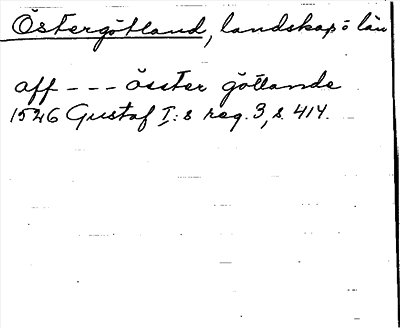 Östergötland, landskap o län
aff - - - össter götlande
1526 Gustaf I:s reg. 3, s. 414.